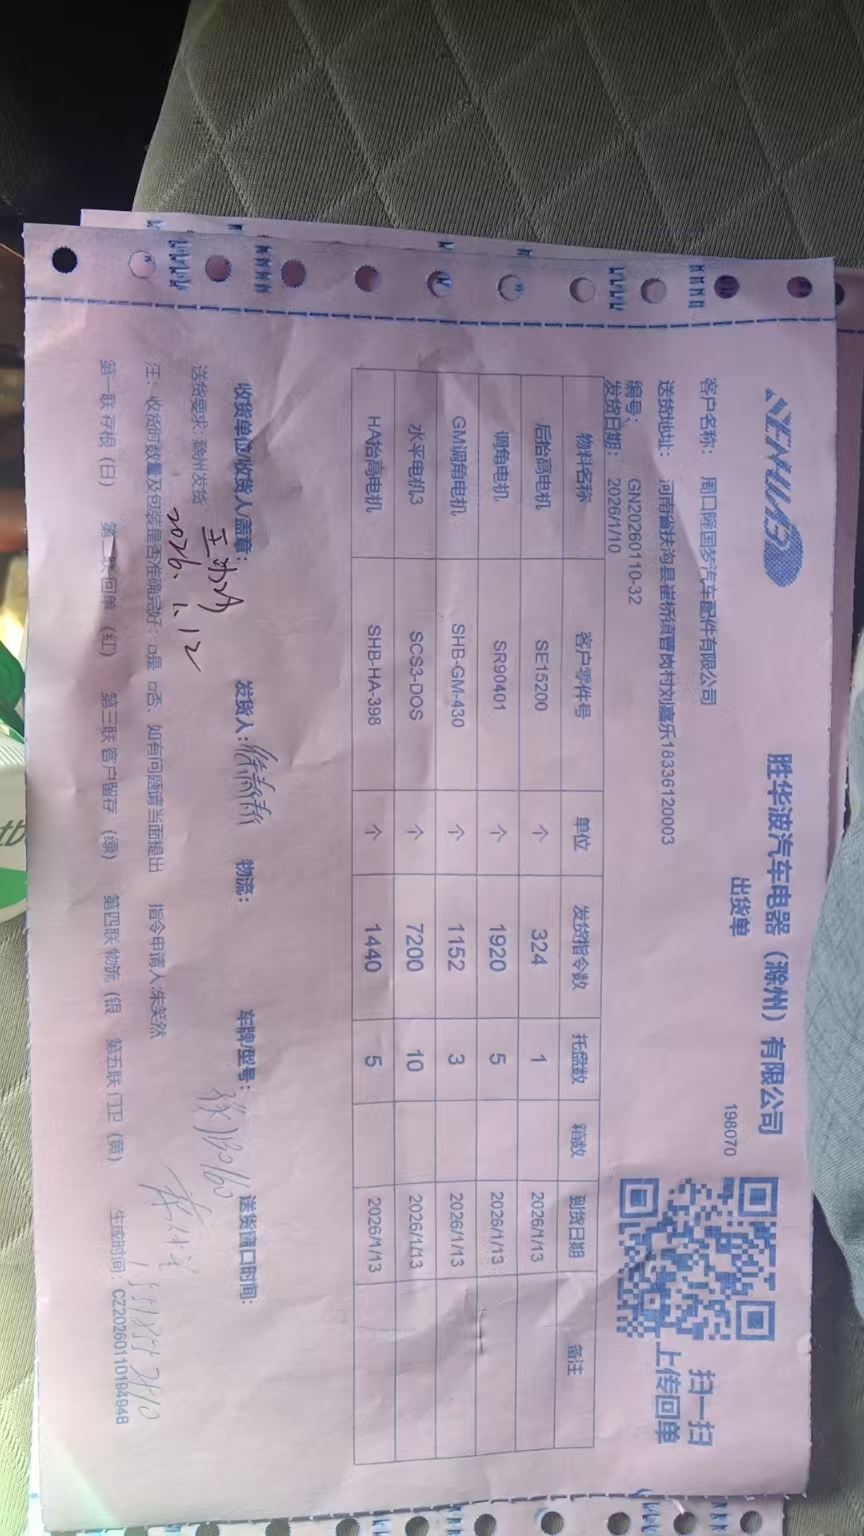 SENHUB
胜华波汽车电器（滁州）有限公司
出货单
198070
扫一扫
上传回单
客户名称： 周口隆国梦汽车配件有限公司
送货地址： 河南省扶沟县崔桥镇曹岗村刘嘉乐18336120003
编号： GN20260110-32
发货日期： 2026/1/10
物料名称 客户零件号 单位 发货指令数 托盘数 箱数 到货日期 备注
后抬高电机 SE15200 个 324 1 2026/1/13
调角电机 SR90401 个 1920 5 2026/1/13
GM调角电机 SHB-GM-430 个 1152 3 2026/1/13
水平电机3 SCS3-DOS 个 7200 10 2026/1/13
HA抬高电机 SHB-HA-398 个 1440 5 2026/1/13
收货单位/收货人/盖章： 发货人： 物流： 车牌/型号： 送货窗口时间：
送货要求: 滁州发货
2026.1.12
注：收货时数量及包装是否准确完好：□是 □否、如有问题请当面提出 指令申请人:朱笑然
第一联 存根（白） 第二联 回单（红） 第三联 客户留存（绿） 第四联 物流（银 第五联 门卫（黄） 生成时间：CZ20260110194948